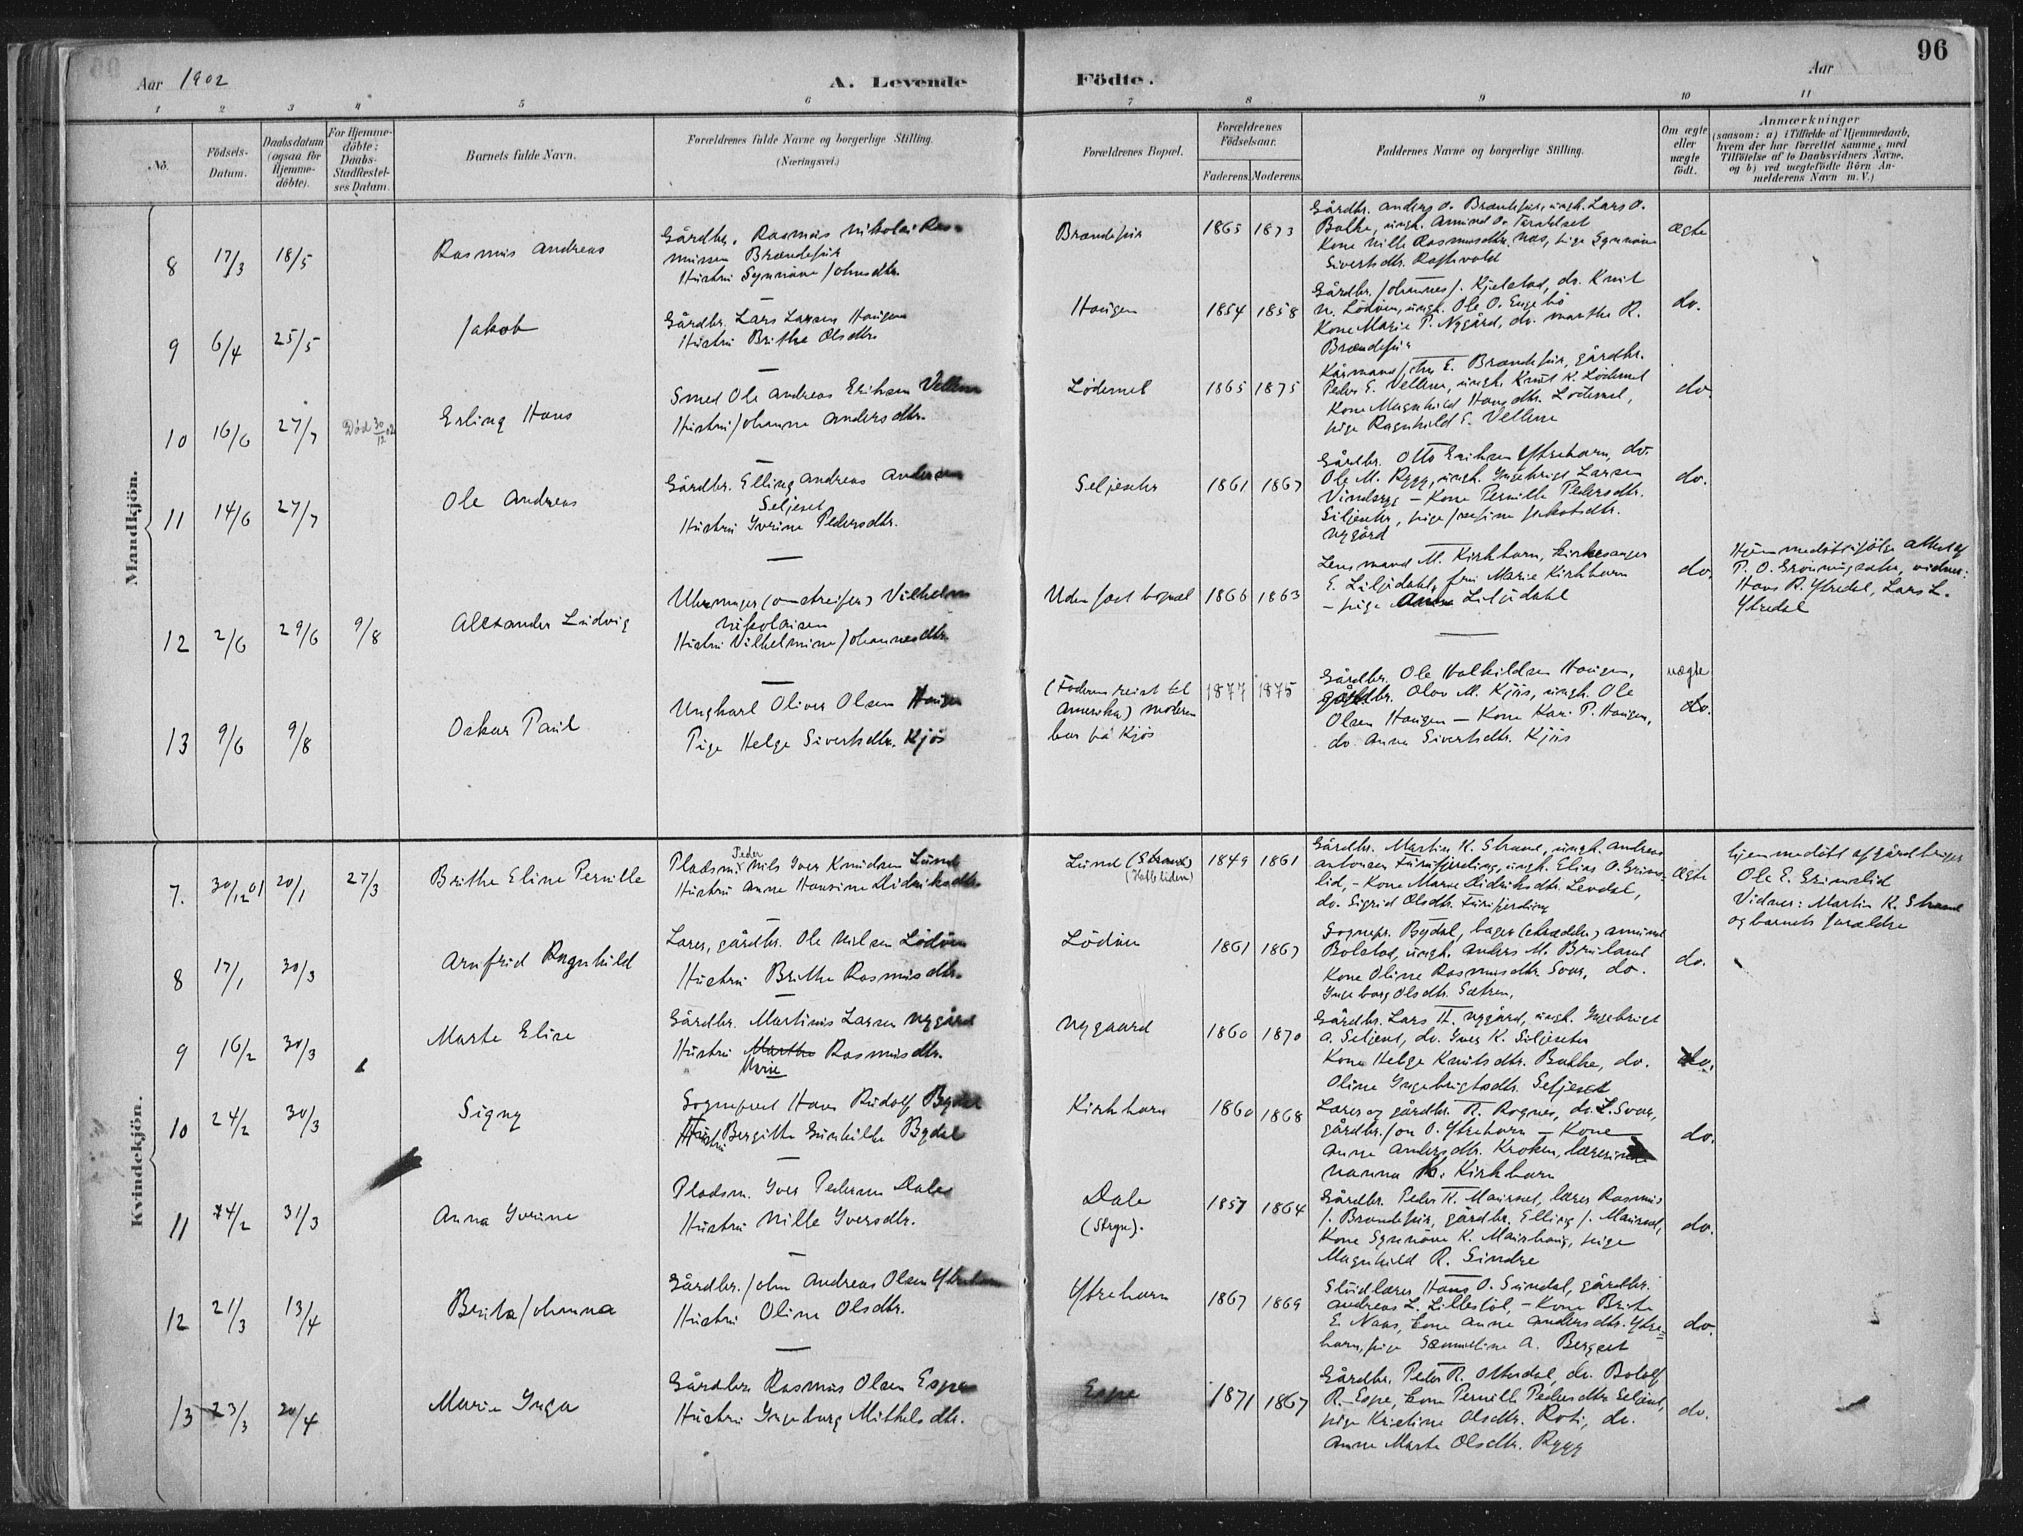 96
Aar 1902
A. Levende Födte.
Aar
1 2 3 4 5 6 7 8 9 10 11
No.
Födsels-Datum.
Daabsdatum (ogsaa for Hjemme-döbte).
For Hjemme-döbte: Daabs-Stadfæstel-ses Datum.
Barnets fulde Navn.
Forældrenes fulde Navne og borgerlige Stilling.
(Næringsvei.)
Forældrenes Bopæl.
Forældrenes Födselsaar.
Faderens. Moderens.
Faddernes Navne og borgerlige Stilling.
Om ægte eller uægte födt.
Anmærkninger
(saasom: a) i Tilfælde af Hjemmedaab,
hvem der har forrettet samme, med
Tilföielse af to Daabsvidners Navne,
og b) ved uægtefödte Börn An-
melderens Navn m. V.)
Mandkjön.
8 17/3 18/5 Rasmus Andreas
Gårdbr. Rasmus Nikolai Ras-
mussen Brændefur
Hustru Synnöve Johnsdtr.
Brændefur 1865 1873
Gårdbr. Anders O. Brændefur, ungk. Lars O.
Bakke, ungk. Amund O. Taraldset
Kone Nille Rasmusdtr. Nos, pige Synnöve
Sivertsdtr. Raftevold
ægte
9 6/4 25/5 Jakob
Gårdbr. Lars Larsen Haugen
Hustru Brithe Olsdtr.
Haugen 1854 1858
Gårdbr. Johannes J. Kjelstad, do. Knut
N. Lödöen, ungk. Ole O. Engebö
Kone Marie P. Nygård, do. Marthe R.
Brændefur
do.
10 16/6 27/7 Död 30/12 02 Erling Hans
Smed Ole Andreas Eriksen Vellene
Hustru Johanne Andersdtr.
Lödemel 1865 1875
Kårmand E. Brændefur, gårdbr.
Peder E. Vellene, ungk. Knut K. Lödemel
Kone Magnhild Hansdtr. Lödemel,
pige Ragnhild E. Vellene
do.
11 14/6 27/7 Ole Andreas
Gårdbr. Elling Andreas Andersen
Seljeset
Hustru Iverine Pedersdtr.
Seljeseter 1861 1867
Gårdbr. Otto Eriksen Ytrehorn, do.
Ole M. Rygg, ungk. Ingebrigt Larsen
Vindsryg – Kone Pernille Pedersdtr.
Siljeseter, pige Josefine Jakobsdtr.
Nygård
do.
12 2/6 29/6 9/8 Alexander Ludvig
Uhrmager (omstreifer) Vilhelm
Nikolaisen
Hustru Vilhelmine Johannesdtr.
Uden fast bopæl 1866 1863
Lensmand M. Kirkhorn, kirkesanger
E. Liljedahl, fru Marie Kirkhorn
– pige Anna Liljedahl
do.
Hjemmedöbt ifölge attest af
P. O. Gronningsater, vidner:
Hans R. Ytredal, Lars L.
Ytredal
13 9/6 9/8 Oskar Paul
Ungkarl Oliver Olsen Haugen
Pige Helge Sivertsdtr. Kjös
(Faderen reist til
Amerika) moderen
bor på Kjös
1877 1875
Gårdbr. Ole Halkildsen Haugen,
gårdbr. Olav M. Kjös, ungk. Ole
Olsen Haugen – Kone Kari P. Haugen,
do. Anna Sivertsdtr. Kjös
uægte
do.
Kvindekjön.
7. 30/12 01 20/1 27/3 Brithe Eline Pernille
Peder
Pladsm. Nils Iver Knudsen Lunde
Hustru Anne Hansine Didriksdtr.
Lund (Strand) 1849 1861
Gårdbr. Martin K. Strand, ungk. Andreas
Antonsen Furifjerding, ungk. Elias O. Grims-
lid, – Kone Marie Didriksdtr. Levdal,
do. Sigrid Olsdtr. Furifjerding
ægte
hjemmedöbt af gårdbruger
Ole E. Grimslid
Vidner: Martin K. Strand
og barnets forældre
8 17/1 30/3 Arnfrid Ragnhild
Lærer, gårdbr. Ole Nilsen Lödöen
Hustru Brithe Rasmusdtr.
Lödöen 1861 1867
Sognepr. Bydal, Amund
Bolstad, ungk. Anders M. Bruland
Kone Oline Rasmusdtr. Svor, do.
Ingeborg Olsdtr. Sætren,
do.
9 16/2 30/3 Marte Elise
Gårdbr. Martinus Larsen Nygård
Hustru Marthe Rasmusdtr.
Marie
Nygaard 1860 1870
Gårdbr. Lars H. Nygård, ungk. Ingebrigt
A. Seljeset, do. Iver K. Seljeseter
Kone Helge Knutsdtr. Bakke, do.
Oline Ingebrigtsdtr. Seljeset
do.
10 24/2 30/3 Signy
Sogneprest Hans Rudolf Bydal
Hustru Bergitte Gunhilde Bydal
Kirkhorn 1860 1868
Lærer og gårdbr. R. Rognes, do. L. Svor,
gårdbr. Jon O. Ytrehorn – Kone
Anne Andersdtr. Kroken, lærerinde
Nanna K. Kirkhorn
do.
11 24/2 31/3 Anna Iverine
Pladsm. Iver Pedersen Dale
Hustru Nille Iversdtr.
Dale
(Stryn). 1857 1864
Gårdbr. Peder K. Maurset, lærer Rasmus
J. Brændefur, gårdbr. Elling J. Maurset,
Kone Synnöve K. Maurhaug, pige
Magnhild R. Sindre
do.
12 21/3 13/4 Berita Johanna
Gårdbr. John Andreas Olsen Ytrehorn
Hustru Oline Olsdtr.
Ytrehorn 1867 1869
Hans O. Sundal, gårdbr.
Andreas L. Lillestöl, – Kone Brithe
E. Naas, kone Anne Andersdtr. Ytre=
horn, pige Samueline A. Berget
do.
13 23/3 20/4 Marie Inga
Gårdbr. Rasmus Olsen Espe
Hustru Ingeborg Mikkelsdtr.
Espe 1871 1867
Gårdbr. Peder R. Otterdal, do. Botolf
R. Espe, kone Pernille Pedersdtr. Seljeset,
pige Kristine Olsdtr. Roti, do.
Anne Marte Olsdtr. Rygg
do.